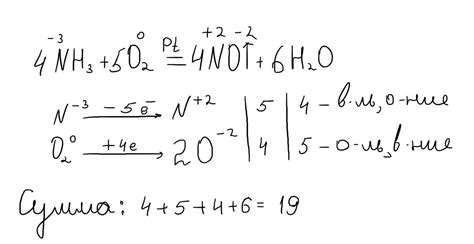 -3 0 +2 -2
4NH₃ + 5O₂ =Pt 4NO↑ + 6H₂O
N⁻³ – 5e⁻ → N⁺² | 5 | 4 – в-ль, о-ние
O₂⁰ +4e → 2O⁻² | 4 | 5 – о-ль, в-ние
Сумма: 4+5+4+6= 19